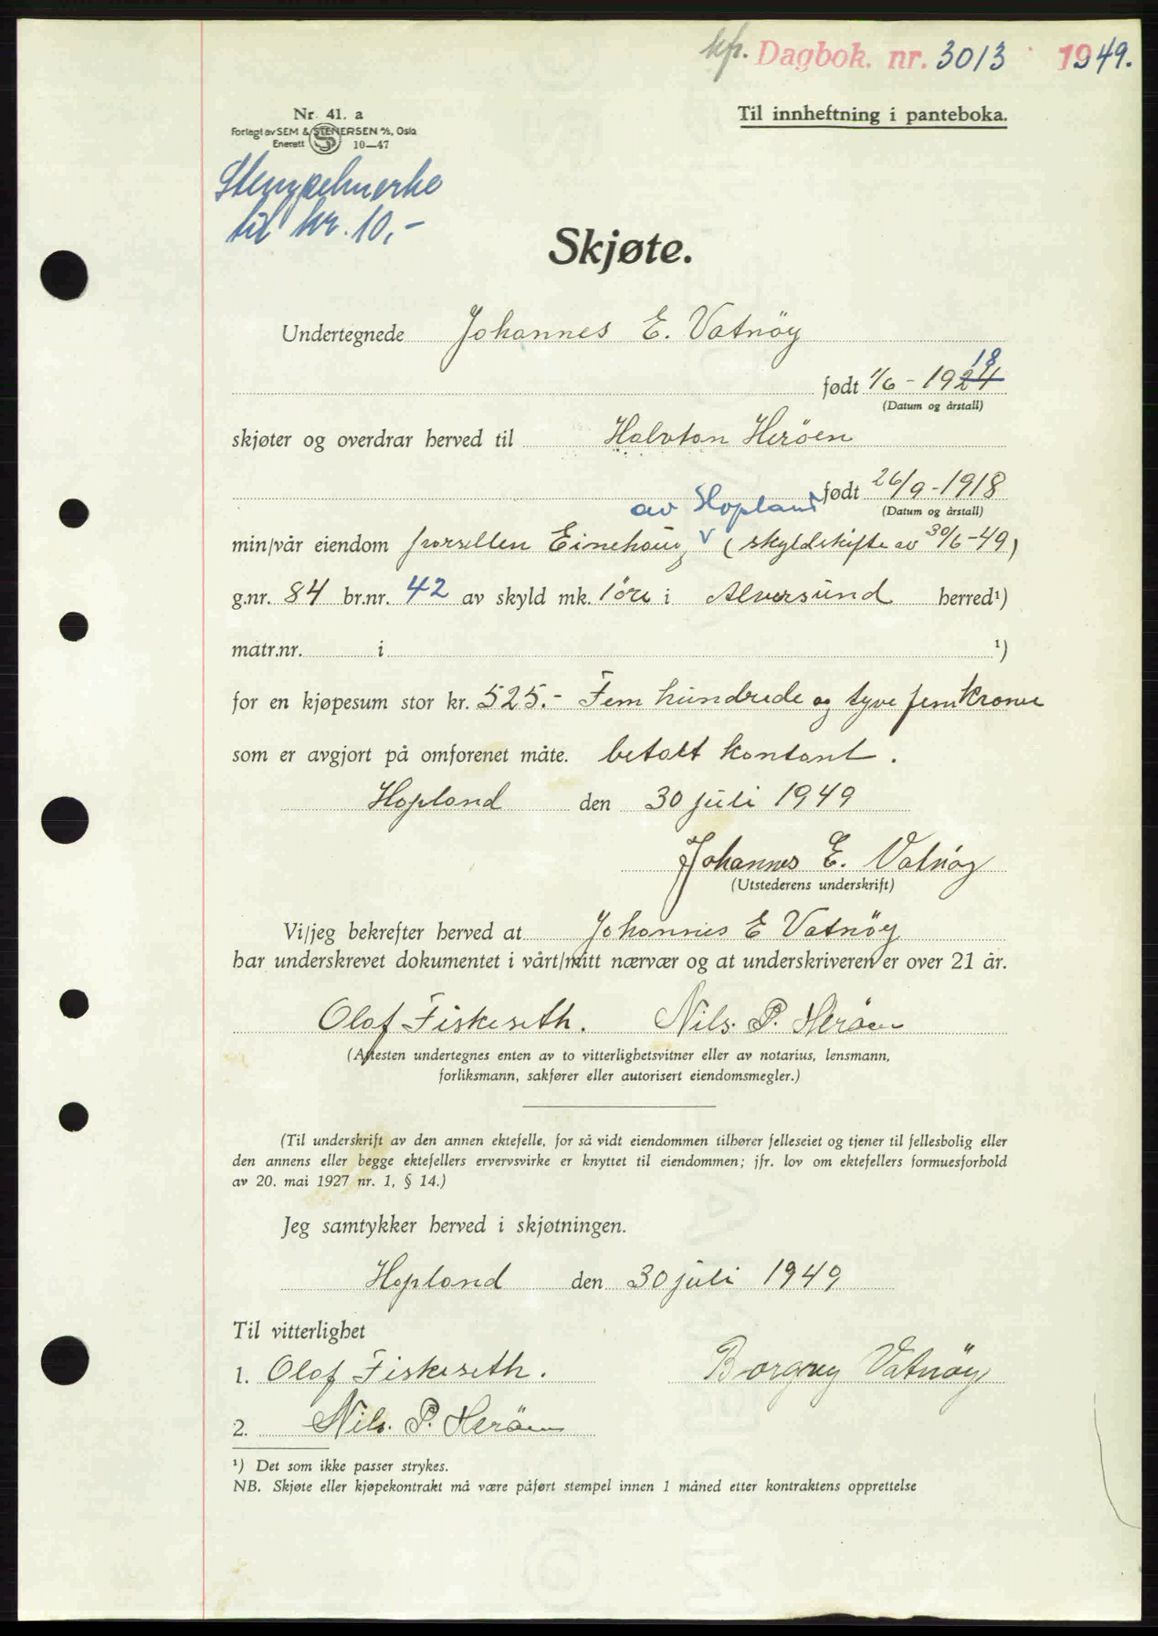 kfr. Dagbok. nr. 3013 1949.
Nr. 41. a
Forlagt av SEM & STENERSEN A/S, Oslo
Enerett 10—47
Til innheftning i panteboka.
Stempelmerke
til kr. 10,-
Skjøte.
Undertegnede Johannes E. Vatnöy
18
født 1/6 - 1924
(Datum og årstall)
skjøter og overdrar herved til Halvtan Heröen
født 26/9 - 1918
(Datum og årstall)
av Hopland
min/vår eiendom parsellen Einehaug v (skyldskifte av 30/6-49)
g.nr. 84 br.nr. 42 av skyld mk. 1 öre i Alversund herred¹)
matr.nr. i ¹)
for en kjøpesum stor kr. 525.- Fem hundrede og tyve fem kroner
som er avgjort på omforenet måte. betalt kontant.
Hopland den 30 juli 1949
Johannes E. Vatnöy
(Utstederens underskrift)
Vi/jeg bekrefter herved at Johannes E Vatnöy
har underskrevet dokumentet i vårt/mitt nærvær og at underskriveren er over 21 år.
Olaf Fiskeseth. Nils. P. Heröen
(Attesten undertegnes enten av to vitterlighetsvitner eller av notarius, lensmann,
forliksmann, sakfører eller autorisert eiendomsmegler.)
(Til underskrift av den annen ektefelle, for så vidt eiendommen tilhører felleseiet og tjener til fellesbolig eller
den annens eller begge ektefellers ervervsvirke er knyttet til eiendommen; jfr. lov om ektefellers formuesforhold
av 20. mai 1927 nr. 1, § 14.)
Jeg samtykker herved i skjøtningen.
Hopland den 30 juli 1949
Til vitterlighet
1. Olaf Fiskeseth. Borgny Vatnöy
2. Nils. P. Heröen
¹) Det som ikke passer strykes.
NB. Skjøte eller kjøpekontrakt må være påført stempel innen 1 måned etter kontraktens opprettelse